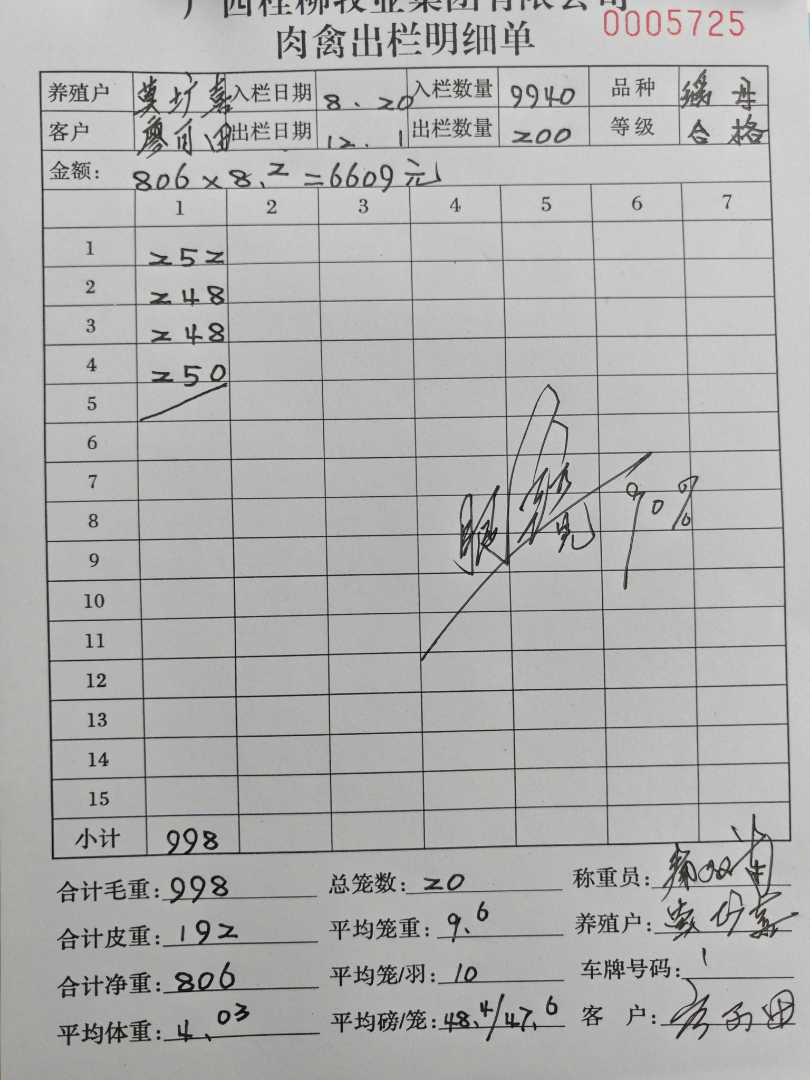 广西桂柳牧业集团有限公司
肉禽出栏明细单 0005725
养殖户 入栏日期 8.20 入栏数量 9940 品种
客户 出栏日期 12.1 出栏数量 200 等级 合格
金额: 806×8.2=6609元
1 2 3 4 5 6 7
1 252
2 248
3 248
4 250
5
6
7
8 90%
9
10
11
12
13
14
15
小计 998
合计毛重: 998 总笼数: 20 称重员:
合计皮重: 192 平均笼重: 9.6 养殖户:
合计净重: 806 平均笼/羽: 10 车牌号码:
平均体重: 4.03 平均磅/笼: 48.4/47.6 客 户: